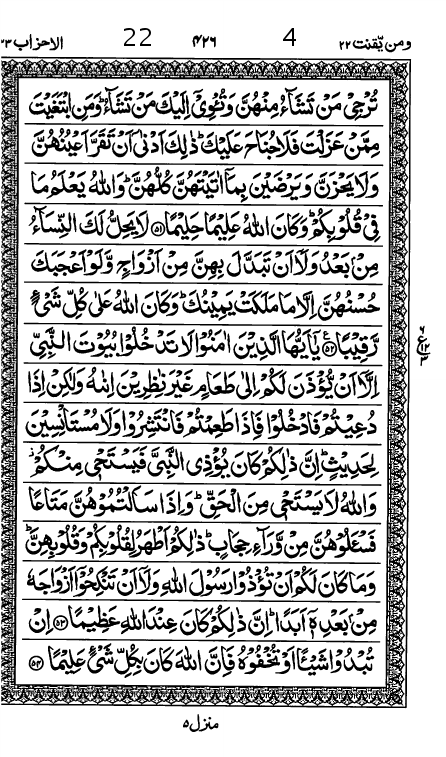 ومن يقنت ٢٢ 4 ٤٢٦ 22 الاحزاب ٣٣
تُرْجِیْ مَنْ تَشَآءُ مِنْهُنَّ وَتُـْٔوِیْۤ اِلَیْكَ مَنْ تَشَآءُ ؕ وَمَنِ ابْتَغَیْتَ
مِمَّنْ عَزَلْتَ فَلَا جُنَاحَ عَلَیْكَ ؕ ذٰلِكَ اَدْنٰۤی اَنْ تَقَرَّ اَعْیُنُهُنَّ
وَلَا یَحْزَنَّ وَیَرْضَیْنَ بِمَاۤ اٰتَیْتَهُنَّ كُلُّهُنَّ ؕ وَاللّٰهُ یَعْلَمُ مَا
فِیْ قُلُوْبِكُمْ ؕ وَكَانَ اللّٰهُ عَلِیْمًا حَلِیْمًا ﴿٥١﴾ لَا یَحِلُّ لَكَ النِّسَآءُ
مِنْۢ بَعْدُ وَلَاۤ اَنْ تَبَدَّلَ بِهِنَّ مِنْ اَزْوَاجٍ وَّلَوْ اَعْجَبَكَ
حُسْنُهُنَّ اِلَّا مَا مَلَكَتْ یَمِیْنُكَ ؕ وَكَانَ اللّٰهُ عَلٰی كُلِّ شَیْءٍ
رَّقِیْبًا ﴿٥٢﴾ یٰۤاَیُّهَا الَّذِیْنَ اٰمَنُوْا لَا تَدْخُلُوْا بُیُوْتَ النَّبِیِّ
اِلَّاۤ اَنْ یُّؤْذَنَ لَكُمْ اِلٰی طَعَامٍ غَیْرَ نٰظِرِیْنَ اِنٰىهُ وَلٰكِنْ اِذَا
دُعِیْتُمْ فَادْخُلُوْا فَاِذَا طَعِمْتُمْ فَانْتَشِرُوْا وَلَا مُسْتَاْنِسِیْنَ
لِحَدِیْثٍ ؕ اِنَّ ذٰلِكُمْ كَانَ یُؤْذِی النَّبِیَّ فَیَسْتَحْیٖ مِنْكُمْ ؗ
وَاللّٰهُ لَا یَسْتَحْیٖ مِنَ الْحَقِّ ؕ وَاِذَا سَاَلْتُمُوْهُنَّ مَتَاعًا
فَسْـَٔلُوْهُنَّ مِنْ وَّرَآءِ حِجَابٍ ؕ ذٰلِكُمْ اَطْهَرُ لِقُلُوْبِكُمْ وَقُلُوْبِهِنَّ ؕ
وَمَا كَانَ لَكُمْ اَنْ تُؤْذُوْا رَسُوْلَ اللّٰهِ وَلَاۤ اَنْ تَنْكِحُوْۤا اَزْوَاجَهٗ
مِنْۢ بَعْدِهٖۤ اَبَدًا ؕ اِنَّ ذٰلِكُمْ كَانَ عِنْدَ اللّٰهِ عَظِیْمًا ﴿٥٣﴾ اِنْ
تُبْدُوْا شَیْـًٔا اَوْ تُخْفُوْهُ فَاِنَّ اللّٰهَ كَانَ بِكُلِّ شَیْءٍ عَلِیْمًا ﴿٥٤﴾
منزل ٥